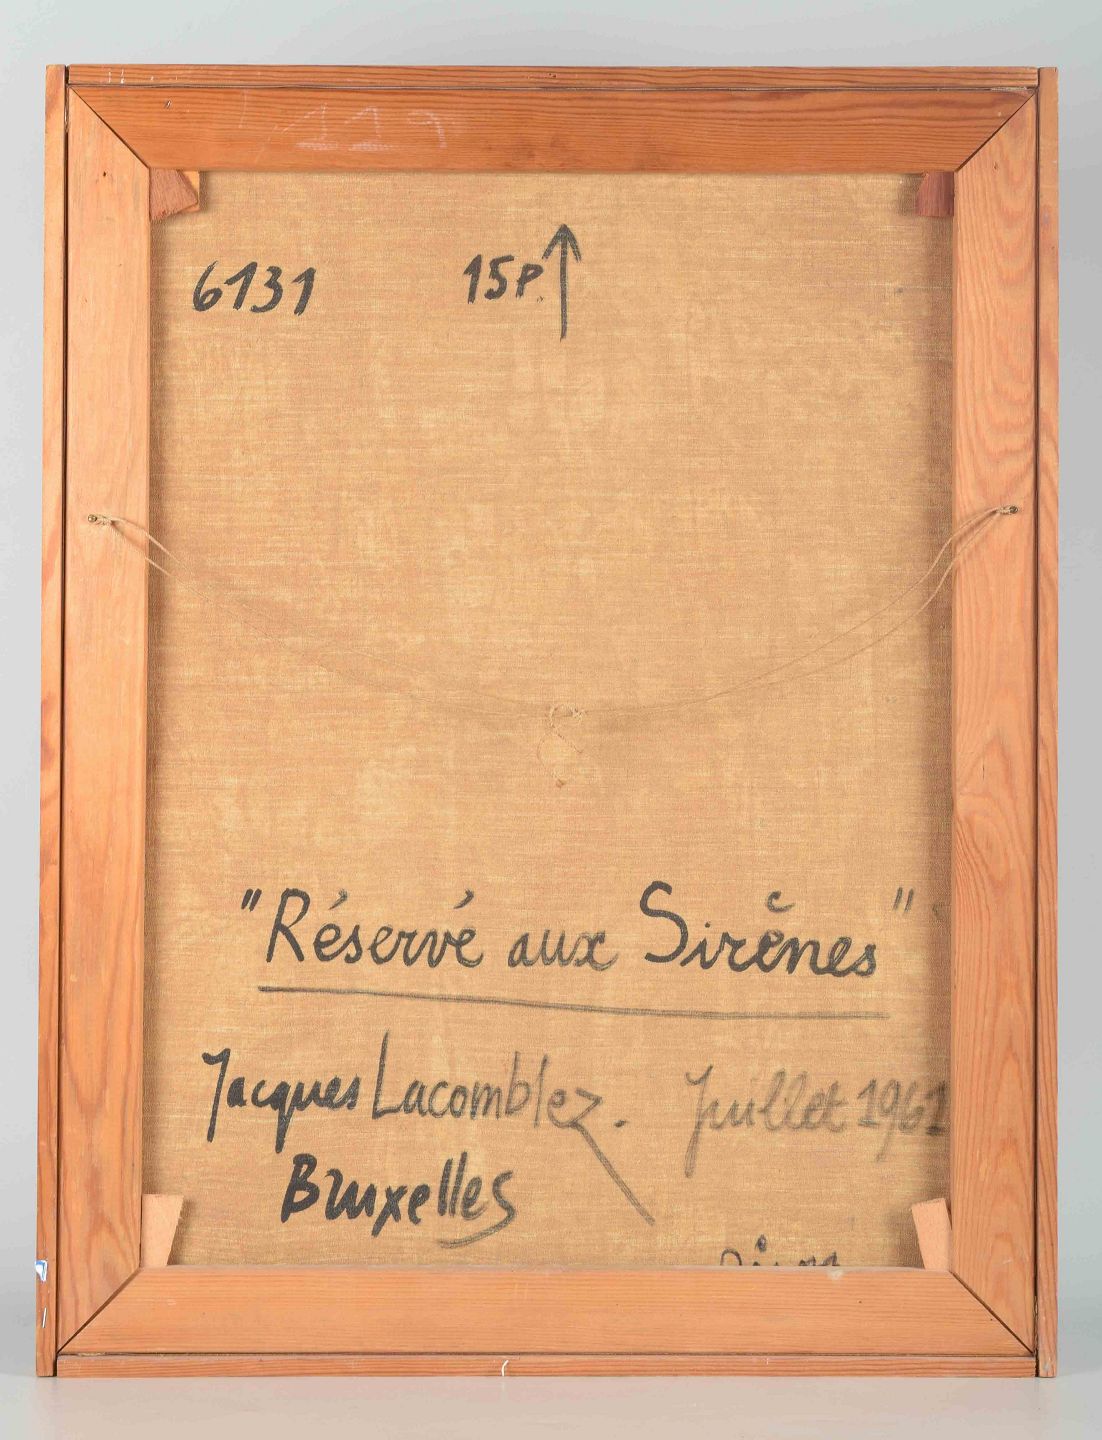 6131 15P. ↑
"Réservé aux Sirènes"
Jacques Lacomblez. Juillet 1961
Bruxelles